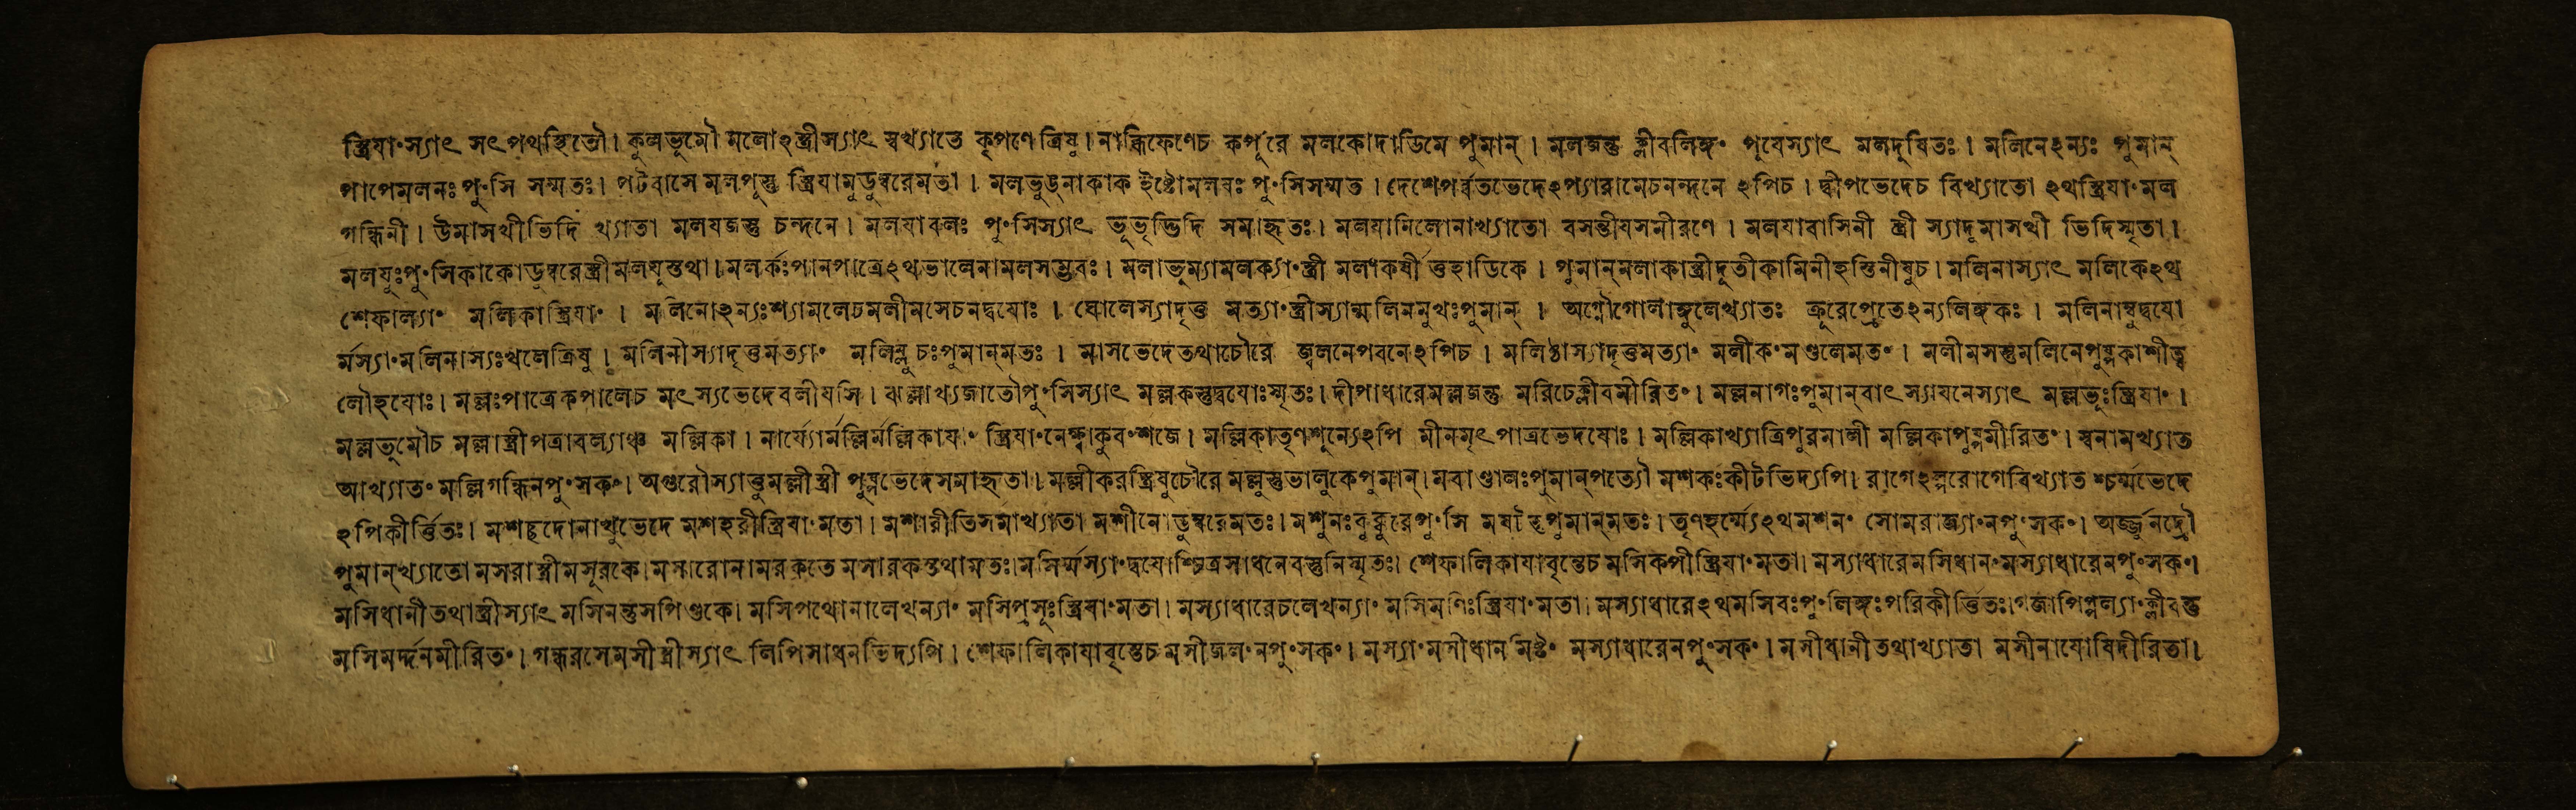 স্ত্রিযাং স্যাৎ সৎপথস্থিতৌ। কুলভূমৌ মলোঽস্ত্রী স্যাৎ স্বখ্যাতে কৃপণে ত্রিষু। নাহ্নিফেণেচ কর্পূরে মলকোদাডিমে পুমান্। মলজন্তু ক্লীবলিঙ্গং পূযেস্যাৎ মলদূষিতঃ। মলিনেঽন্যঃ পুমান্
পাপেমলনঃ পুংসি সম্মতঃ। পটবাসে মলপূস্তু স্ত্রিযামুডুম্বরেমতা। মলভুঙ্নাকাক ইষ্টোমলবঃ পুংসিসম্মত। দেশেপর্ব্বতভেদেঽপ্যারামেচনন্দনে ঽপিচ। দ্বীপভেদেচ বিখ্যাতো ঽথস্ত্রিযাং মল
গন্ধিনী। উমাসখীভিদি খ্যাতা মলযজস্তু চন্দনে। মলযাবলঃ পুংসিস্যাৎ ভূভৃদ্ভিদি সমাহৃতঃ। মলযানিলোনাখ্যাতো বসন্তীযসমীরণে। মলযাবাসিনী স্ত্রী স্যাদুমাসখী ভিদিস্মৃতা।
মলযূঃপুংসিকাকোডুম্বরেস্ত্রীমলযূস্তথা। মলর্কঃপানপাত্রেঽথভালেনামলসম্ভবঃ। মলাভূম্যামলক্যাংস্ত্রী মলাকর্ষী ত্তহাডিকে। পুমান্মলাকাস্ত্রীদূতীকামিনীহস্তিনীষুচ। মলিনাস্যাৎ মলিকেঽথ
শেফাল্যাং মলিকাস্ত্রিযাং। মলিনোঽন্যঃশ্যামলেচমলীমসেচনদ্বযোঃ। ঘোলেস্যাদৃত্ত মত্যাংস্ত্রীস্যান্মলিনমুখঃপুমান্। অগ্নৌগোলাঙ্গুলেখ্যাতঃ ক্রূরেপ্রেতেঽন্যলিঙ্গকঃ। মলিনাম্বুদ্বযো
র্মস্যাংমলিনাস্যঃখলেত্রিষু। মলিনীস্যাদৃত্তমত্যাং মলিম্লুচঃপুমান্মতঃ। মাসভেদেতথাচৌরে জ্বলনেপবনেঽপিচ। মলিষ্ঠাস্যাদৃত্তমত্যাং মলীকংমণ্ডলেমতং। মলীমসস্তুমলিনেপুষ্পকাশীত্ব
লৌহযোঃ। মল্লঃপাত্রেকপালেচ মৎস্যভেদেবলীযসি। ঝল্লাখ্যজাতৌপুংসিস্যাৎ মল্লকস্তুদ্বযোঃস্মৃতঃ। দীপাধারেমল্লজন্তু মরিচেক্লীবমীরিতং। মল্লনাগঃপুমান্বাৎস্যাযনেস্যাৎ মল্লভূঃস্ত্রিযাং।
মল্লভূমৌচ মল্লাস্ত্রীপত্রাবল্যাঞ্চ মল্লিকা। নার্য্যোর্মল্লির্মল্লিকাযাং স্ত্রিযাংনেক্ষ্বাকুবংশজে। মল্লিকাতৃণশূন্যেঽপি মীনমৃৎপাত্রভেদযোঃ। মল্লিকাখ্যাত্রিপুরমালী মল্লিকাপুষ্পমীরিতং। স্বনামখ্যাত
আখ্যাতং মল্লিগন্ধিনপুংসকং। অগুরৌস্যাত্তুমল্লীস্ত্রী পুষ্পভেদেসমাহৃতা। মল্লীকরস্ত্রিষুচৌরে মল্লুস্তুভালুকেপুমান্। মবাণ্ডালঃপুমান্পত্যৌ মশকঃকীটভিদ্যপি। রাগেঽল্পরোগেবিখ্যাত শ্চর্ম্মভেদে
ঽপিকীর্ত্তিতঃ। মশচ্ছদোনাখুভেদে মশহরীস্ত্রিযাংমতা। মশারীতিসমাখ্যাতা মশীনোত্তুম্বরেমতঃ। মশুনঃকুক্কুরেপুংসি পুমান্মতঃ। তৃণহর্ম্ম্যেঽথমশনং সোমরাজ্যাংনপুংসকং। অর্জ্জুনদ্রৌ
পুমান্খ্যাতো মসরাস্ত্রীমসূরকে। মসারোনামরকতে মসারকস্তথামতঃ। মসির্ম্মস্যাংদ্বযোশ্চিত্রসাধনেবস্তুনিস্মৃতঃ। শেফালিকাযাবৃন্তেচ মসিকপীস্ত্রিযাংমতা। মস্যাধারেমসিধানংমস্যাধারেনপুংসকং।
মসিধানীতথাস্ত্রীস্যাৎ মসিনন্তুসপিণ্ডকে। মসিপথোনালেখন্যাং মসিপ্রসূঃস্ত্রিযাংমতা। মস্যাধারেচলেখন্যাং মসিমণিঃস্ত্রিযাংমতা। মস্যাধারেঽথমসিবঃপুংলিঙ্গঃপরিকীর্ত্তিতঃ। গজাপিপ্পল্যাংক্লীবন্তু
মসিমর্দ্দনমীরিতং। গন্ধরসেমসীস্ত্রীস্যাৎ লিপিসাধনভিদ্যপি। শেফালিকাযাবৃন্তেচ মসীজলংনপুংসকং। মস্যাংমসীধানমিষ্টং মস্যাধারেনপুংসকং। মসীধানীতথাখ্যাতা মসীনাযোষিদীরিতা।